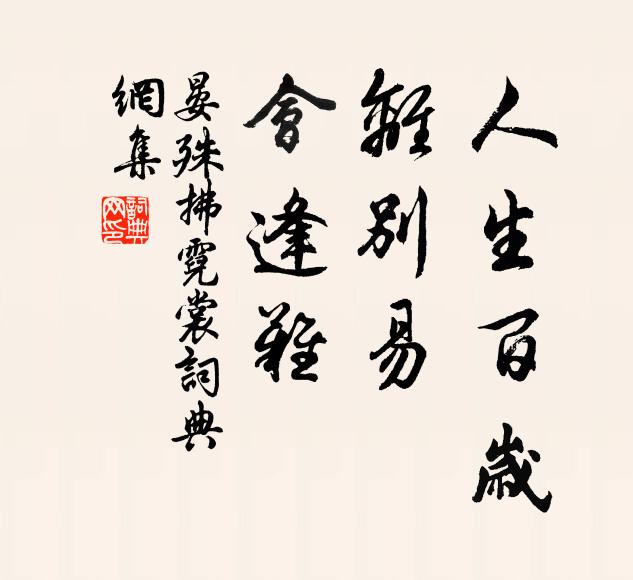 人生百歲
離別易
會逢難
晏殊拂霓裳詞典
網集
詞典
网印